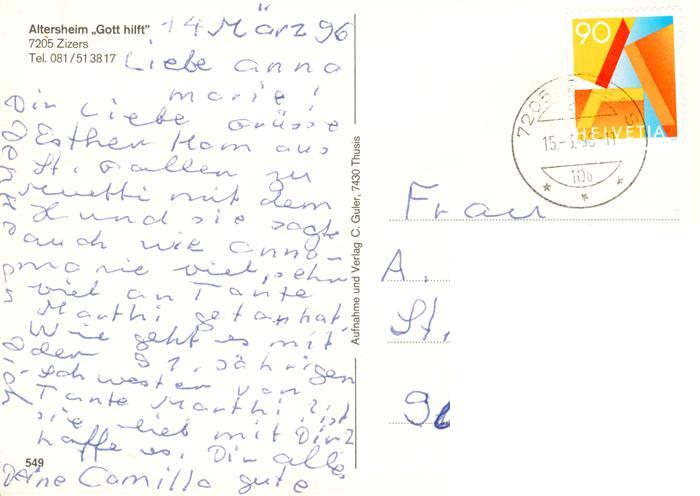 Altersheim „Gott hilft"
7205 Zizers
Tel. 081/513817
14 März 96
Liebe anna
marie!
Dir Liebe Grüsse
Esther Ham aus
St. Gallen zu
Muetti mit dem
Hund sie sagte
auch wie anna-
marie viel, sehr
viel an Tante
Marthi getan hat.
Wie geht es mit
der 81. Jährigen
Schwester von
Tante Marthi? ist
sie lieb mit Dir?
hoffe es. Dir alles
Deine Camilla gute
549
Aufnahme und Verlag C. Guler, 7430 Thusis
90
HELVETIA
7205
15.-3.96-11
106
Frau
A.
St.